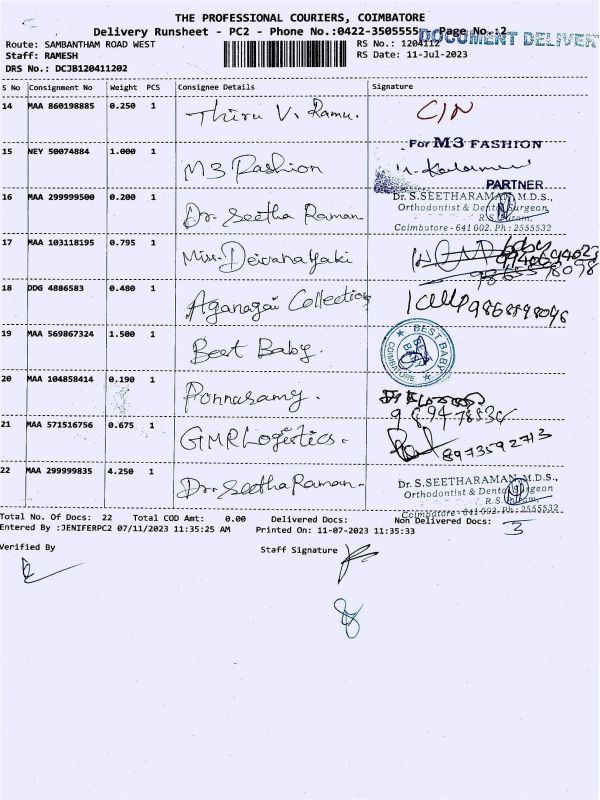 THE PROFESSIONAL COURIERS, COIMBATORE
Delivery Runsheet - PC2 - Phone No.:0422-3505555 Page No.:2
DOCUMENT DELIVER
Route: SAMBANTHAM ROAD WEST RS No.: 1204112
Staff: RAMESH RS Date: 11-Jul-2023
DRS No.: DCJB120411202
S No Consignment No Weight PCS Consignee Details Signature
14 MAA 860198885 0.250 1 Thiru V. Ramu. C/N
15 NEY 50074884 1.000 1 M3 Fashion
For M3 FASHION
PARTNER
16 MAA 299999500 0.200 1 Dr. Seetha Raman
Dr. S.SEETHARAMAN, M.D.S.,
Orthodontist & Dental Surgeon
R.S. Puram,
Coimbatore - 641 002. Ph : 2555532
17 MAA 103118195 0.795 1 Miss. Deivanayaki
18 DDG 4886583 0.480 1 Aganagai Collection
19 MAA 569867324 1.500 1 Best Baby.
BEST BABY
COIMBATORE
20 MAA 104858414 0.190 1 Ponnusamy.
21 MAA 571516756 0.675 1 GMR Logistics.
8973592713
22 MAA 299999835 4.250 1 Dr. Seetha Raman.
Dr. S.SEETHARAMAN, M.D.S.,
Orthodontist & Dental Surgeon
R.S. Puram,
Coimbatore - 641 002. Ph : 2555532
Total No. Of Docs: 22 Total COD Amt: 0.00 Delivered Docs: Non Delivered Docs: 3
Entered By :JENIFERPC2 07/11/2023 11:35:25 AM Printed On: 11-07-2023 11:35:33
Verified By Staff Signature
8